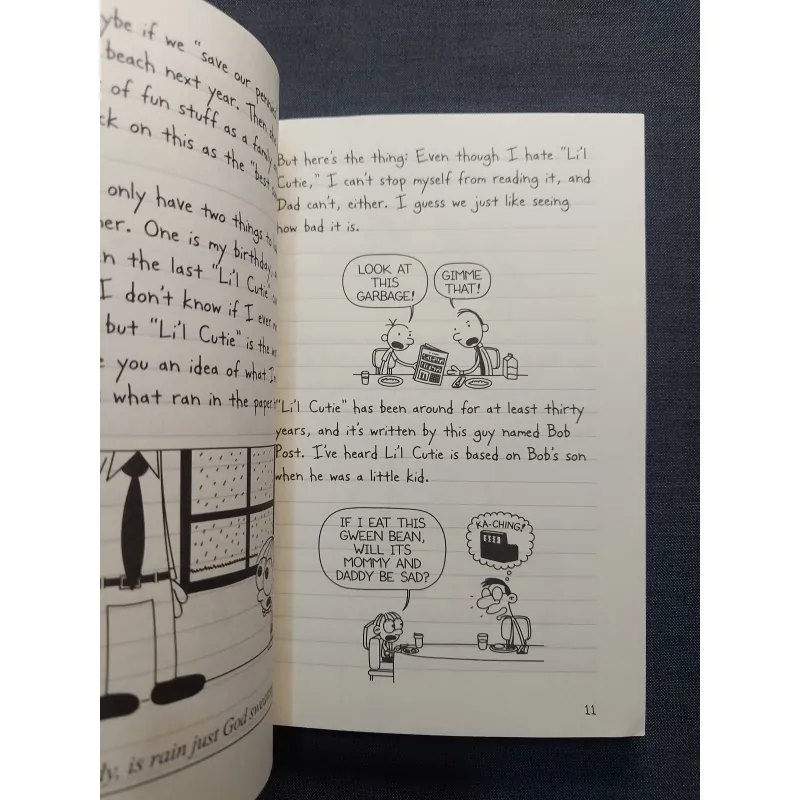 ybe if we "save our
beach next year. Then
of fun stuff as a family
ck on this as the "best
only have two things to
her. One is my birthday,
n the last "Li'l Cutie"
I don't know if I ever
but "Li'l Cutie" is the
you an idea of what I
what ran in the paper
ly, is rain just God
But here's the thing: Even though I hate "Li'l
Cutie," I can't stop myself from reading it, and
Dad can't, either. I guess we just like seeing
how bad it is.
LOOK AT
THIS
GARBAGE!
GIMME
THAT!
"Li'l Cutie" has been around for at least thirty
years, and it's written by this guy named Bob
Post. I've heard Li'l Cutie is based on Bob's son
when he was a little kid.
IF I EAT THIS
GWEEN BEAN,
WILL ITS
MOMMY AND
DADDY BE SAD?
KA-CHING!
11